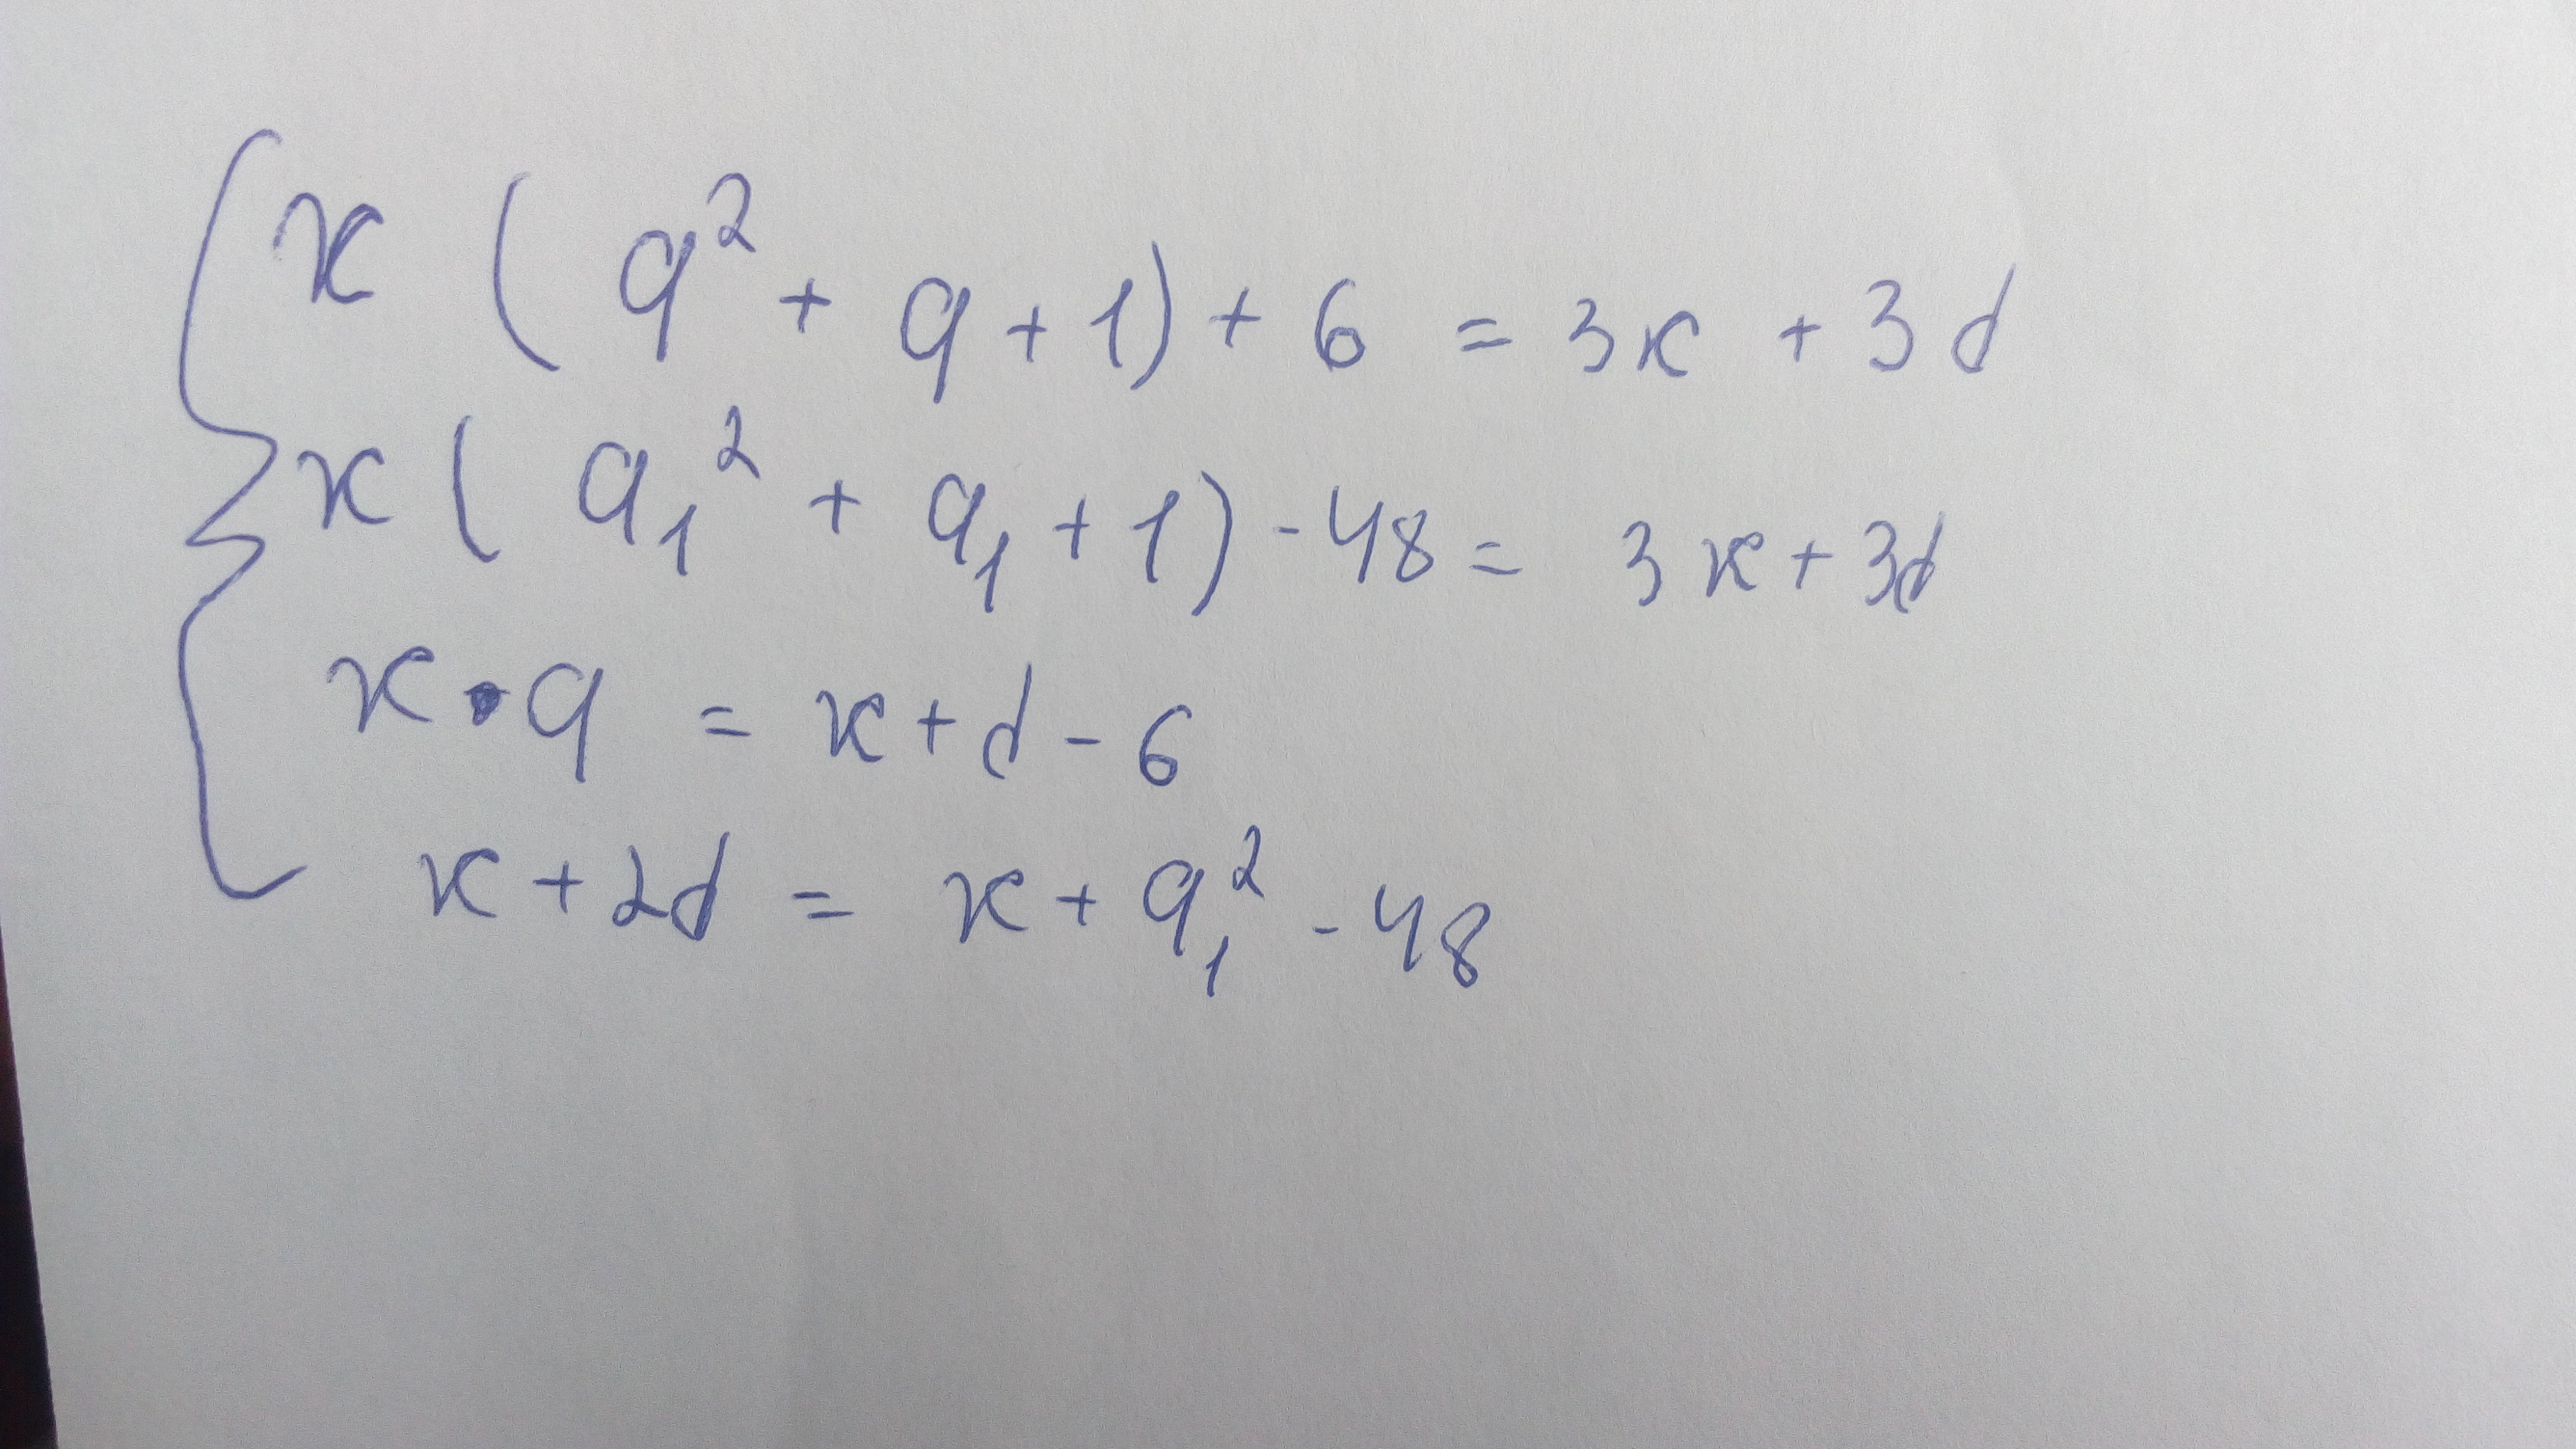 x ( q² + q + 1) + 6 = 3x + 3d
x ( q₁² + q₁ + 1) - 48 = 3x + 3d
x • q = x + d - 6
x + 2d = x + q₁² - 48